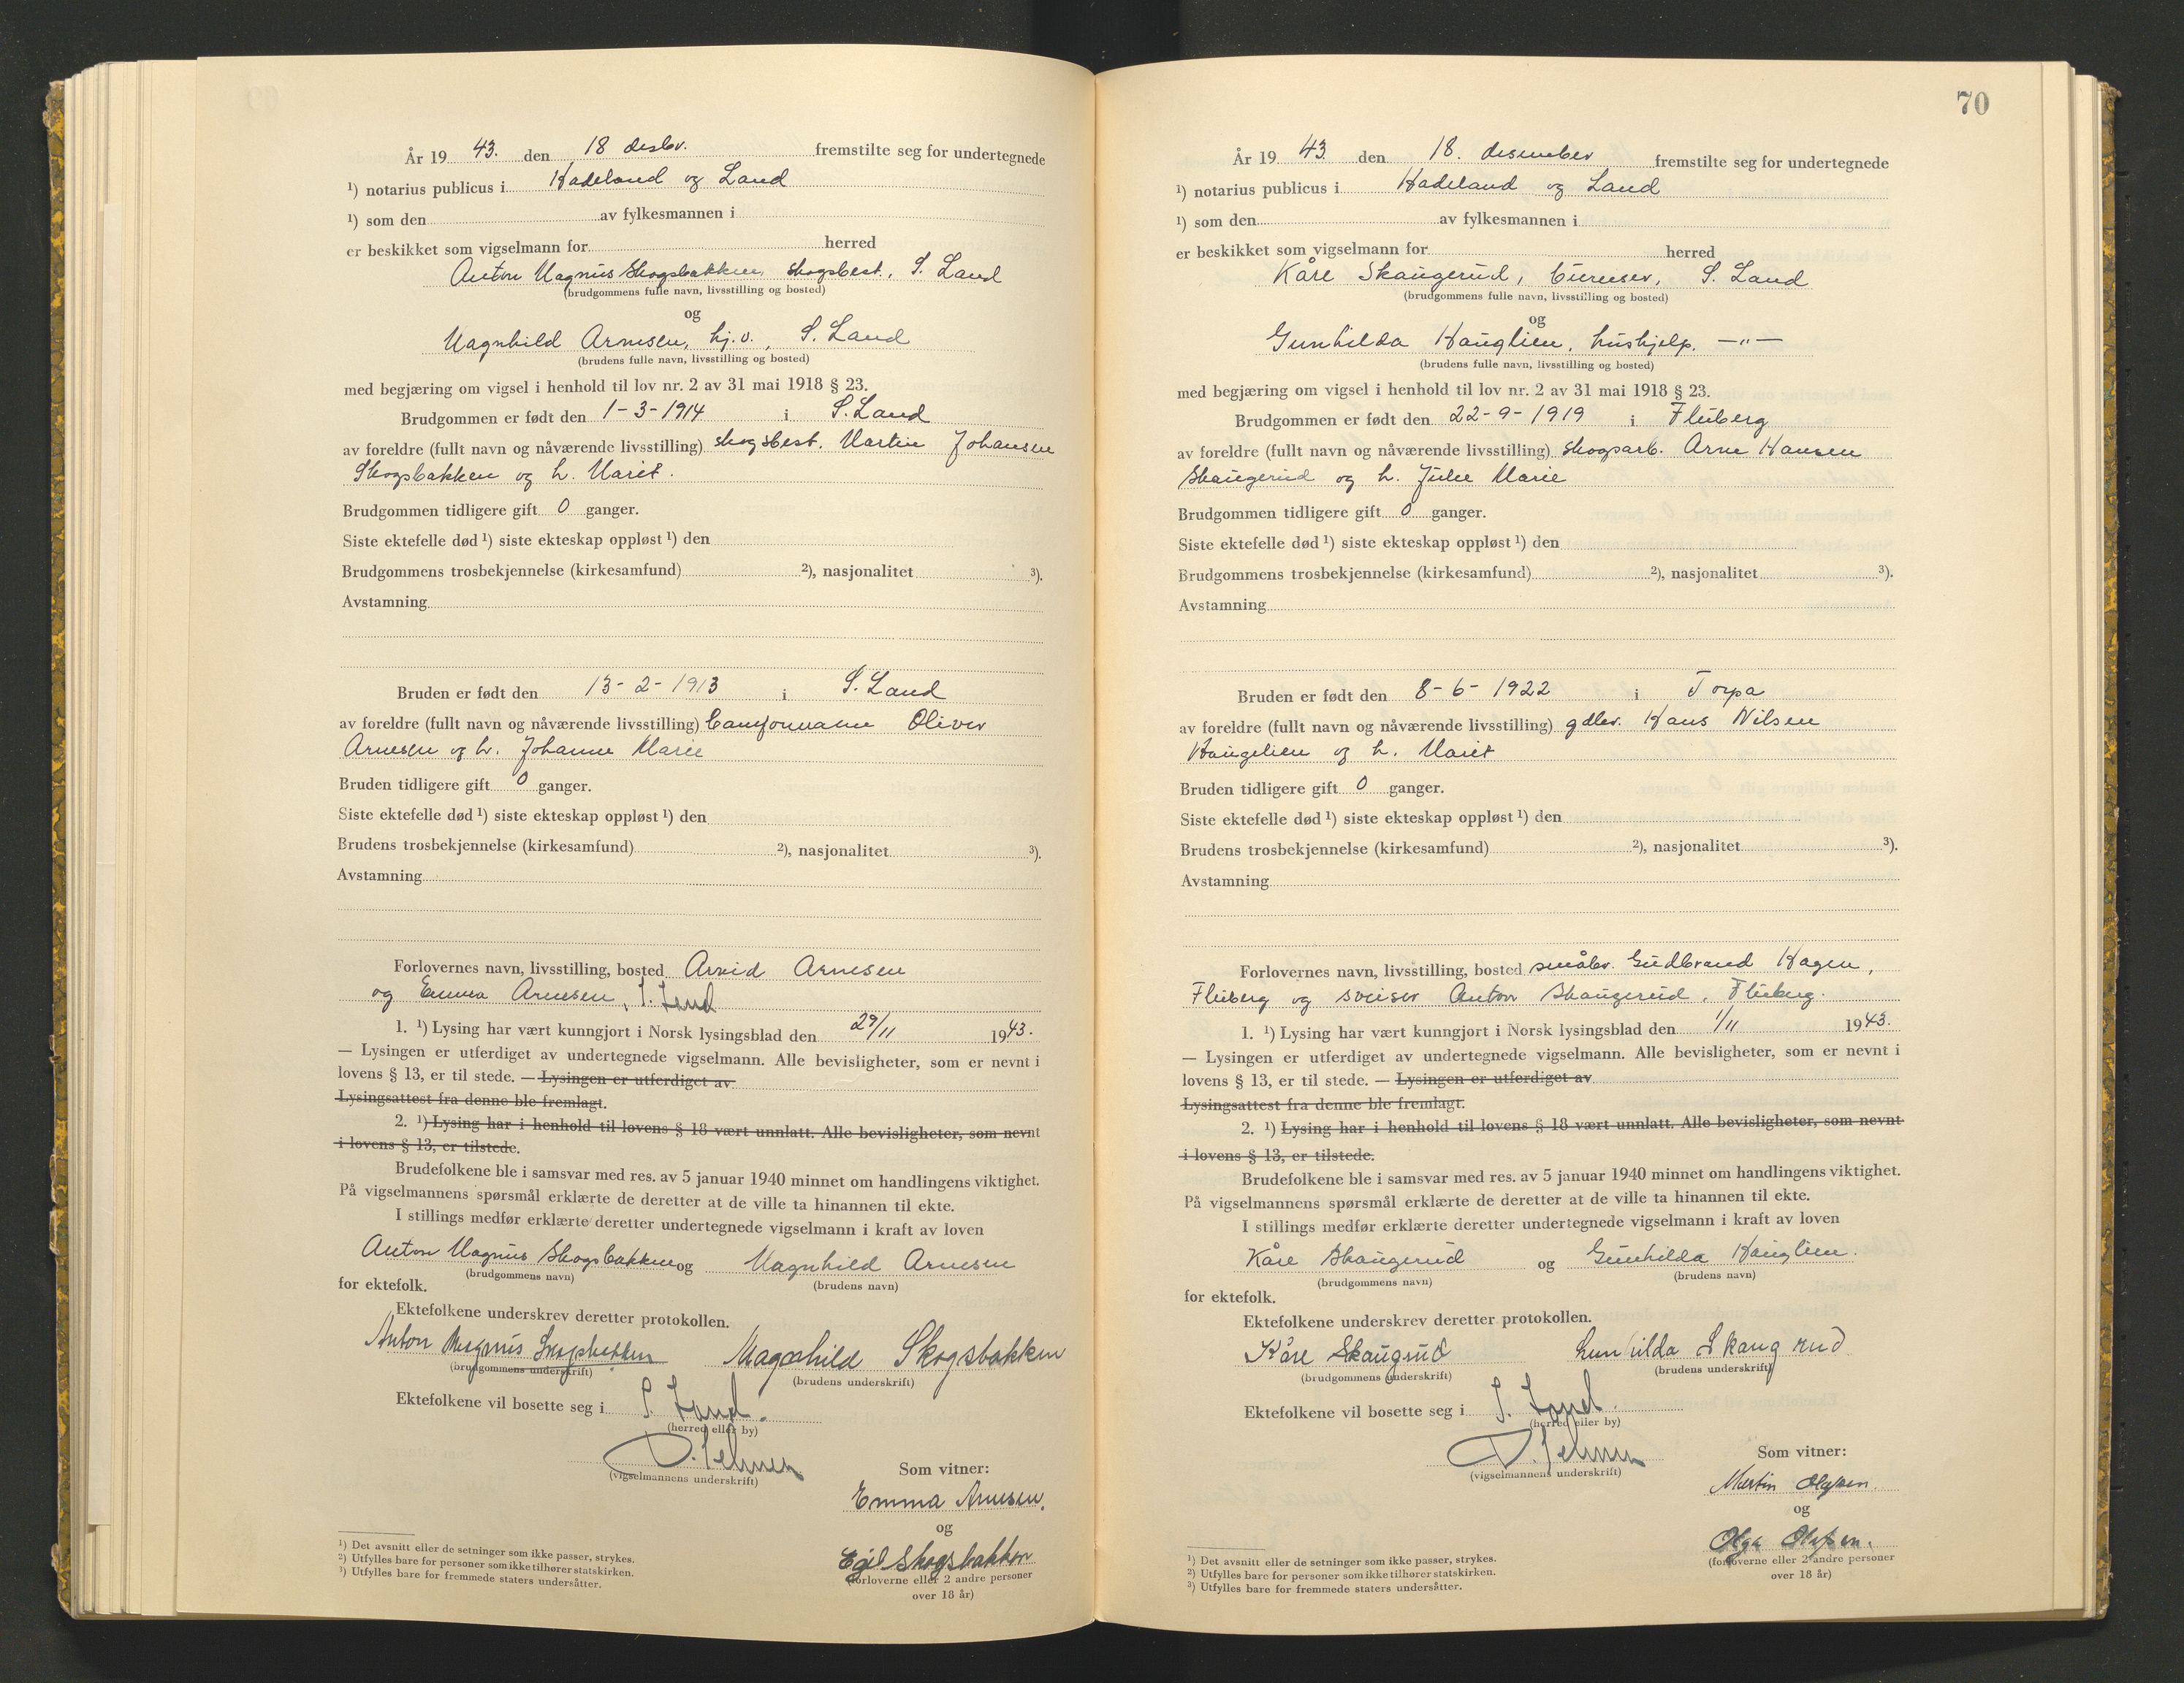 År 19 43. den 18 desbr. fremstilte seg for undertegnede
¹) notarius publicus i Hadeland og Land
¹) som den av fylkesmannen i
er beskikket som vigselmann for herred
Anton Magnus Skogsbakken, skogsbest., S. Land
(brudgommens fulle navn, livsstilling og bosted)
og
Magnhild Arnesen, hj.v., S. Land
(brudens fulle navn, livsstilling og bosted)
med begjæring om vigsel i henhold til lov nr. 2 av 31 mai 1918 § 23.
Brudgommen er født den 1-3-1914 i S. Land
av foreldre (fullt navn og nåværende livsstilling) skogsbest. Martin Johansen
Skogsbakken og h. Marit.
Brudgommen tidligere gift 0 ganger.
Siste ektefelle død ¹) siste ekteskap oppløst ¹) den
Brudgommens trosbekjennelse (kirkesamfund) ²), nasjonalitet ³).
Avstamning
Bruden er født den 13-2-1913 i S. Land
av foreldre (fullt navn og nåværende livsstilling) Oliver
Arnesen og h. Johanne Marie
Bruden tidligere gift 0 ganger.
Siste ektefelle død ¹) siste ekteskap oppløst ¹) den
Brudens trosbekjennelse (kirkesamfund) ²), nasjonalitet ³).
Avstamning
Forlovernes navn, livsstilling, bosted Arvid Arnesen
og Emma Arnesen, S. Land
1. ¹) Lysing har vært kunngjort i Norsk lysingsblad den 29/11 1943.
— Lysingen er utferdiget av undertegnede vigselmann. Alle bevisligheter, som er nevnt i
lovens § 13, er til stede. — Lysingen er utferdiget av
Lysingsattest fra denne ble fremlagt.
2. ¹) Lysing har i henhold til lovens § 18 vært unnlatt. Alle bevisligheter, som nevnt
i lovens § 13, er tilstede.
Brudefolkene ble i samsvar med res. av 5 januar 1940 minnet om handlingens viktighet.
På vigselmannens spørsmål erklærte de deretter at de ville ta hinannen til ekte.
I stillings medfør erklærte deretter undertegnede vigselmann i kraft av loven
Anton Magnus Skogsbakken og Magnhild Arnesen
(brudgommens navn) (brudens navn)
for ektefolk.
Ektefolkene underskrev deretter protokollen.
Anton Magnus Skogsbakken Magnhild Skogsbakken
(brudgommens underskrift) (brudens underskrift)
Ektefolkene vil bosette seg i S. Land.
(herred eller by)
(vigselmannens underskrift)
Som vitner:
Emma Arnesen.
og
Egil Skogsbakken
(forloverne eller 2 andre personer
over 18 år)
¹) Det avsnitt eller de setninger som ikke passer, strykes.
²) Utfylles bare for personer som ikke tilhører statskirken.
³) Utfylles bare for fremmede staters undersåtter.
70
År 19 43 den 18. desember fremstilte seg for undertegnede
¹) notarius publicus i Hadeland og Land
¹) som den av fylkesmannen i
er beskikket som vigselmann for herred
Kåre Skaugerud, S. Land
(brudgommens fulle navn, livsstilling og bosted)
og
Gunhilda Hauglien, hushjelp, —"—
(brudens fulle navn, livsstilling og bosted)
med begjæring om vigsel i henhold til lov nr. 2 av 31 mai 1918 § 23.
Brudgommen er født den 22-9-1919 i Fluberg
av foreldre (fullt navn og nåværende livsstilling) skogsarb. Arne Hansen
Skaugerud og h. Julie Marie
Brudgommen tidligere gift 0 ganger.
Siste ektefelle død ¹) siste ekteskap oppløst ¹) den
Brudgommens trosbekjennelse (kirkesamfund) ²), nasjonalitet ³).
Avstamning
Bruden er født den 8-6-1922 i Torpa
av foreldre (fullt navn og nåværende livsstilling) gdbr. Hans Nilsen
Haugelien og h. Marit
Bruden tidligere gift 0 ganger.
Siste ektefelle død ¹) siste ekteskap oppløst ¹) den
Brudens trosbekjennelse (kirkesamfund) ²), nasjonalitet ³).
Avstamning
Forlovernes navn, livsstilling, bosted småbr. Gudbrand Hagen,
Fluberg og sveiser Anton Skaugerud, Fluberg.
1. ¹) Lysing har vært kunngjort i Norsk lysingsblad den 1/11 1943.
— Lysingen er utferdiget av undertegnede vigselmann. Alle bevisligheter, som er nevnt i
lovens § 13, er til stede. — Lysingen er utferdiget av
Lysingsattest fra denne ble fremlagt.
2. ¹) Lysing har i henhold til lovens § 18 vært unnlatt. Alle bevisligheter, som nevnt
i lovens § 13, er tilstede.
Brudefolkene ble i samsvar med res. av 5 januar 1940 minnet om handlingens viktighet.
På vigselmannens spørsmål erklærte de deretter at de ville ta hinannen til ekte.
I stillings medfør erklærte deretter undertegnede vigselmann i kraft av loven
Kåre Skaugerud og Gunhilda Hauglien.
(brudgommens navn) (brudens navn)
for ektefolk.
Ektefolkene underskrev deretter protokollen.
Kåre Skaugrud Gunhilda Skaugrud
(brudgommens underskrift) (brudens underskrift)
Ektefolkene vil bosette seg i S. Land.
(herred eller by)
(vigselmannens underskrift)
Som vitner:
Martin Olsen.
og
Olga Olsen.
(forloverne eller 2 andre personer
over 18 år)
¹) Det avsnitt eller de setninger som ikke passer, strykes.
²) Utfylles bare for personer som ikke tilhører statskirken.
³) Utfylles bare for fremmede staters undersåtter.